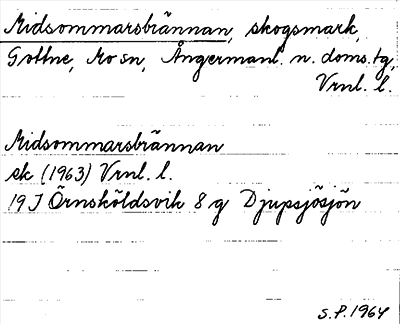 Midsommarsbrännan, skogsmark,
Gottne, Mo sn, Ångermanl. n. doms.tg,
Vrnl. l.
Midsommarsbrännan
sk (1963) Vrnl. l.
19 J Örnsköldsvik 8 g Djupsjösjön
S.P. 1964